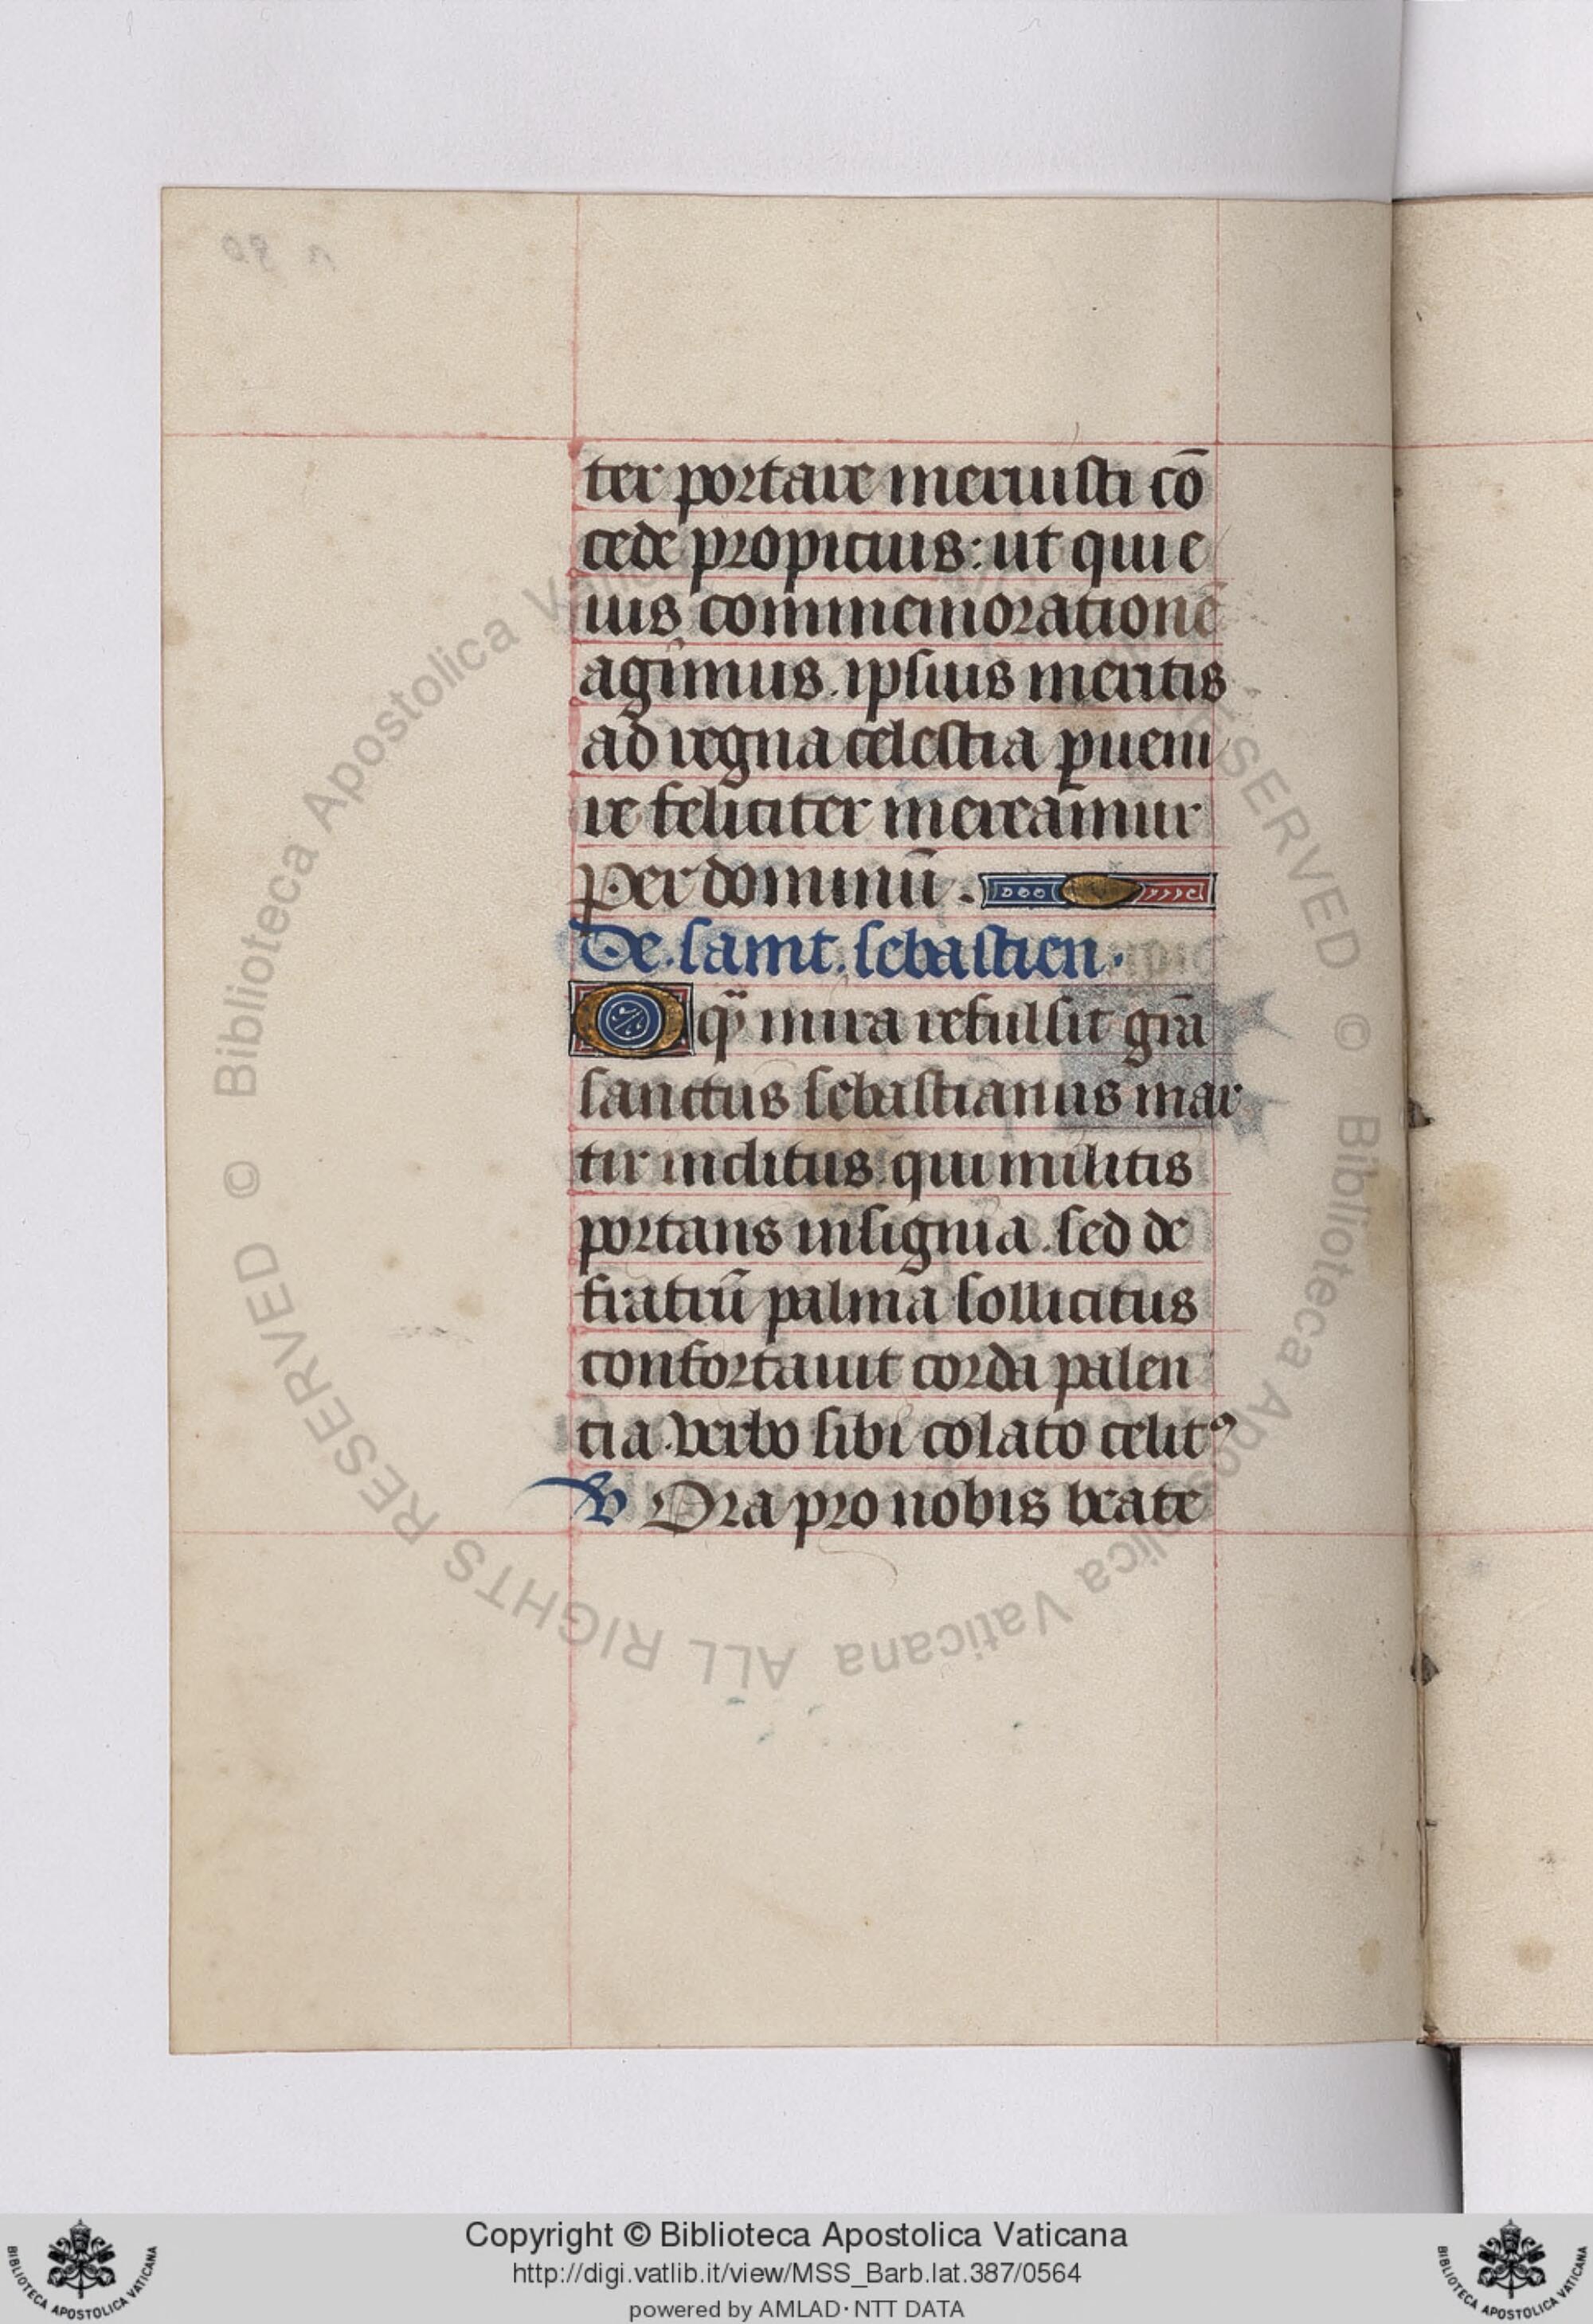 ter portare meruisti cō
cede propicius: ut qui e
iuis commemorationē
agimus. ipsius meritis
ad regna celestia ꝑueni
re feliciter mereamur
Per dominū.
De. saint. sebastien.
O qͣ mira refulsit grā
sanctus sebastianus mar
tir inclitus. qui militis
portans insignia. sed de
fratrū palma sollicitus
confortauit corda palen
tia. verbo sibi colato celitꝰ
℣ Ora pro nobis beate
© Biblioteca Apostolica Vaticana ALL RIGHTS RESERVED © Biblioteca Apostolica Vaticana ALL RIGHTS RESERVED
Copyright © Biblioteca Apostolica Vaticana
http://digi.vatlib.it/view/MSS_Barb.lat.387/0564
powered by AMLAD · NTT DATA
BIBLIOTECA APOSTOLICA VATICANA
BIBLIOTECA APOSTOLICA VATICANA